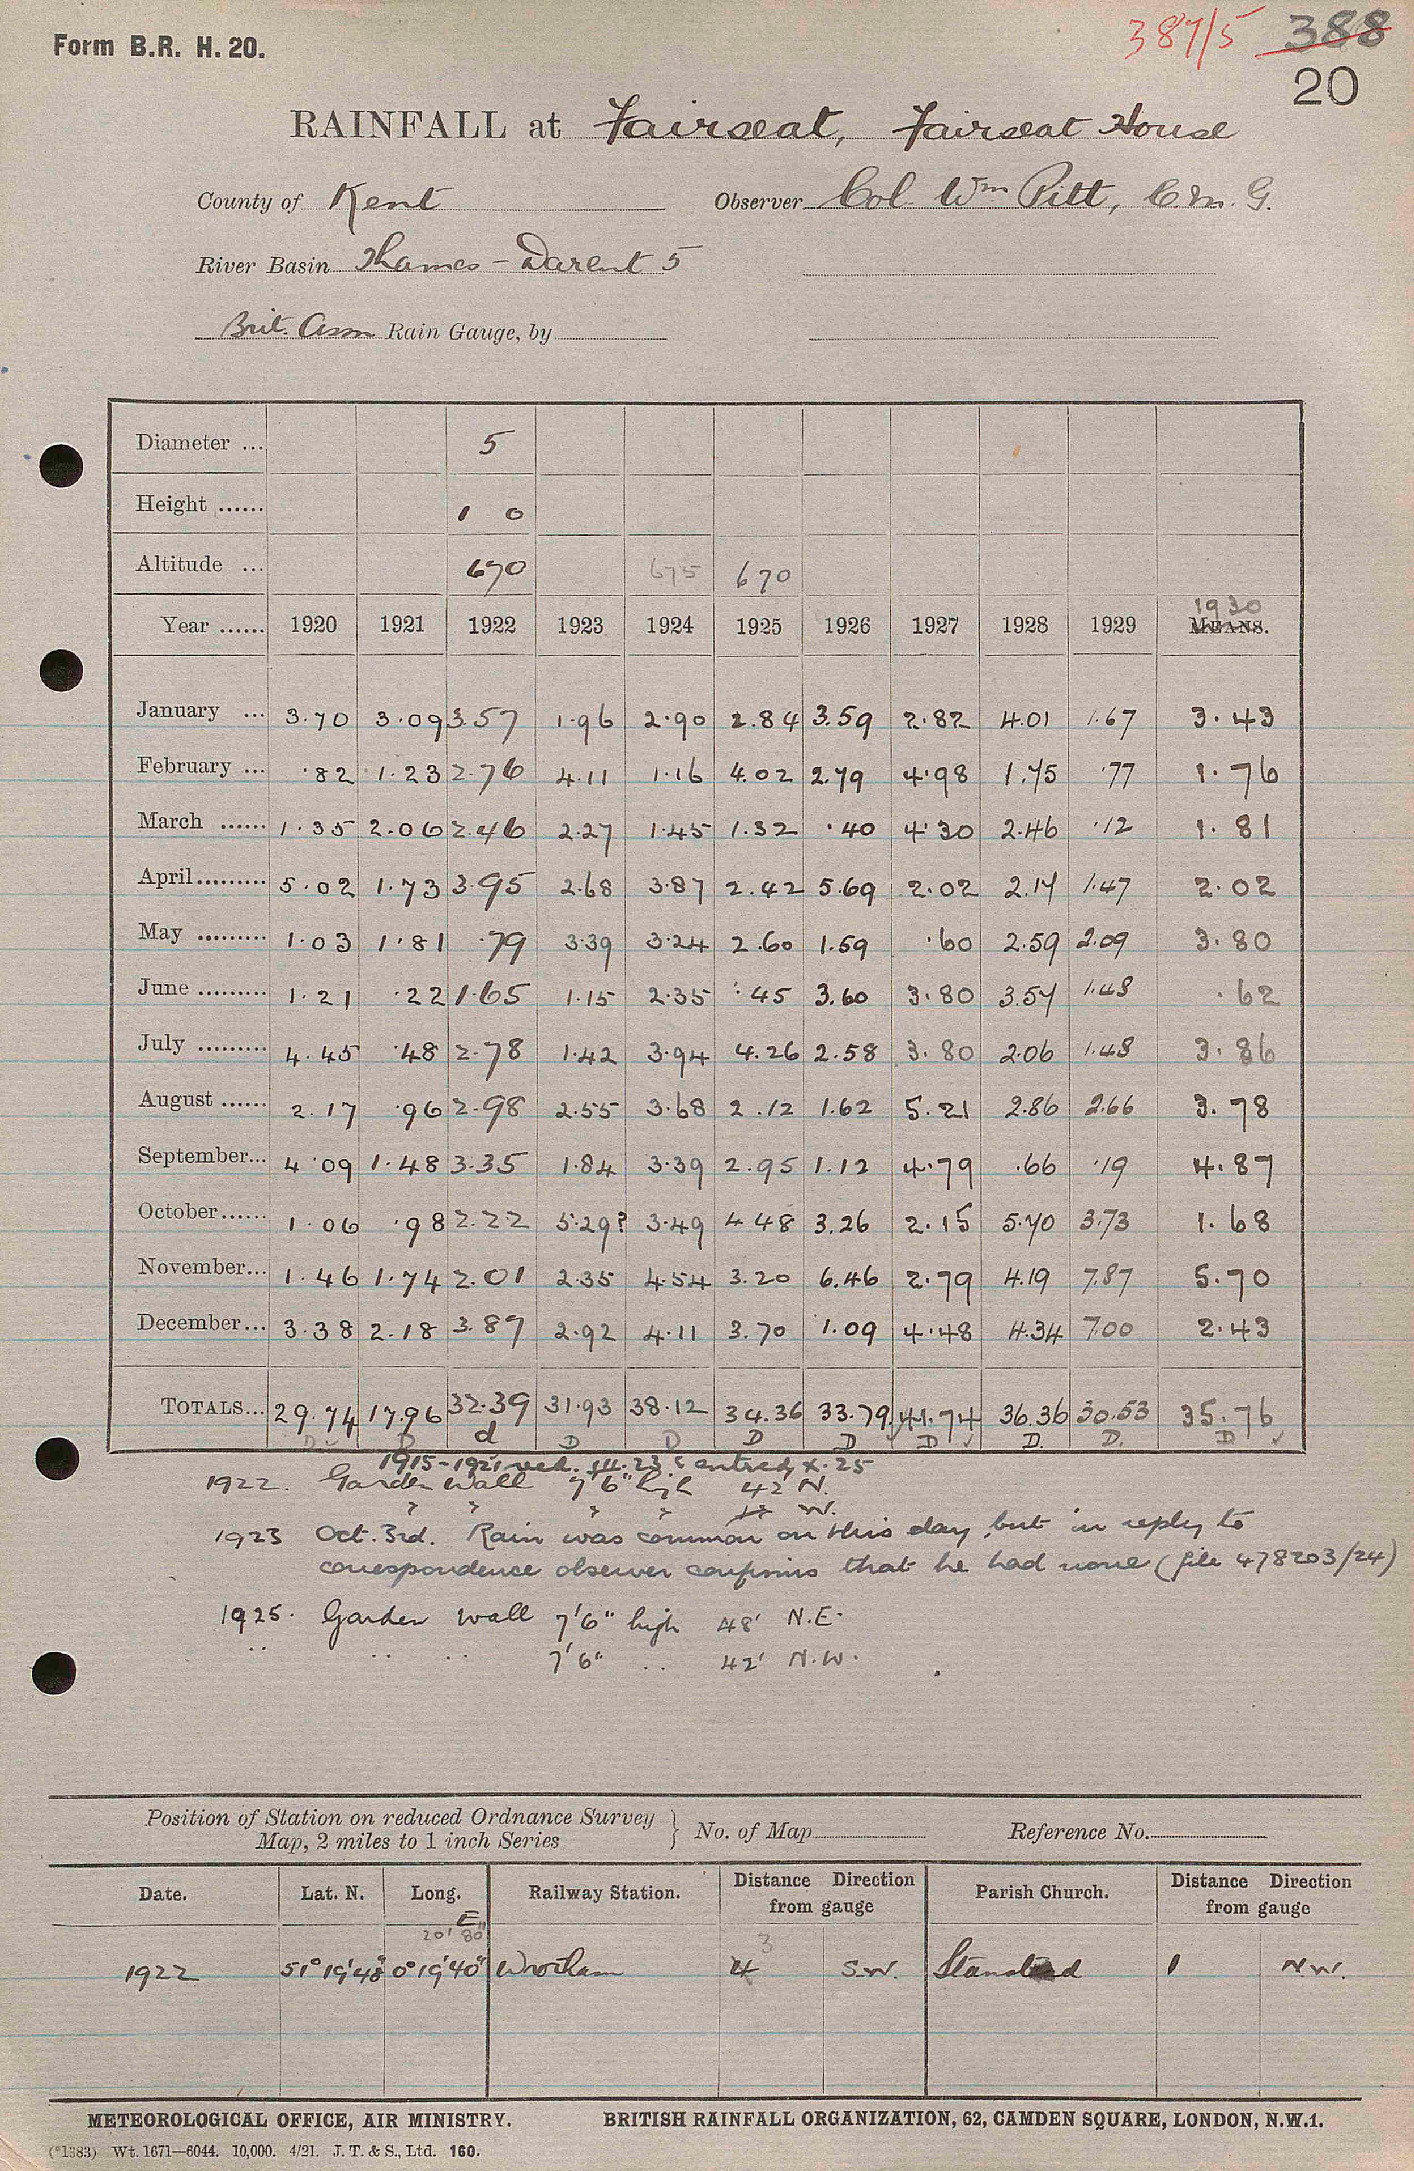 Form B.R. H. 20.
387/5 388
20
RAINFALL at Fairseat, Fairseat House
County of Kent Observer Col. Wm Pitt, C.M.G.
River Basin Thames - Darent 5
Brit. Assn Rain Gauge, by
Diameter ... 5
Height ...... 1 0
Altitude ... 670 675 670
1930
Year ...... 1920 1921 1922 1923 1924 1925 1926 1927 1928 1929 MEANS.
January ... 3.70 3.09 3.57 1.96 2.90 2.84 3.59 2.82 4.01 1.67 3.43
February ... .82 1.23 2.76 4.11 1.16 4.02 2.79 4.98 1.75 .77 1.76
March ...... 1.35 2.06 2.46 2.27 1.45 1.32 .40 4.30 2.46 .12 1.81
April......... 5.02 1.73 3.95 2.68 3.87 2.42 5.69 2.02 2.17 1.47 2.02
May ......... 1.03 1.81 .79 3.39 3.24 2.60 1.59 .60 2.59 2.09 3.80
June ......... 1.21 .22 1.65 1.15 2.35 .45 3.60 3.80 3.57 1.48 .62
July ......... 4.45 .48 2.78 1.42 3.94 4.26 2.58 3.80 2.06 1.48 3.86
August ...... 2.17 .96 2.98 2.55 3.68 2.12 1.62 5.21 2.86 2.66 3.78
September... 4.09 1.48 3.35 1.84 3.39 2.95 1.12 4.79 .66 .19 4.87
October...... 1.06 .98 2.22 5.29? 3.49 4.48 3.26 2.15 5.70 3.73 1.68
November... 1.46 1.74 2.01 2.35 4.54 3.20 6.46 2.79 4.19 7.87 5.70
December... 3.38 2.18 3.87 2.92 4.11 3.70 1.09 4.48 4.34 7.00 2.43
TOTALS... 29.74 17.96 32.39 31.93 38.12 34.36 33.79 41.74 36.36 30.53 35.76
D D d D D D D D ✓ D. D. D ✓
1915-1921 recd. entred x.25
1922. Garden wall 7'6" high 42' N.
" " " " W.
1923 Oct. 3rd. Rain was common on this day, but in reply to
correspondence observer confirms that he had none (file 478203/24)
1925. Garden wall 7'6" high 48' N.E.
.. .. .. 7'6" .. 42' N.W.
Position of Station on reduced Ordnance Survey
Map, 2 miles to 1 inch Series No. of Map Reference No.
Date. Lat. N. Long. E Railway Station. Distance Direction from gauge Parish Church. Distance Direction from gauge
20' 80" 3
1922 51° 19' 48" 0° 19' 40" Wrotham 4 S.W. Stansted 1 N.W.
METEOROLOGICAL OFFICE, AIR MINISTRY. BRITISH RAINFALL ORGANIZATION, 62, CAMDEN SQUARE, LONDON, N.W.1.
(*1383) Wt. 1671—6044. 10,000. 4/21. J. T. & S., Ltd. 160.